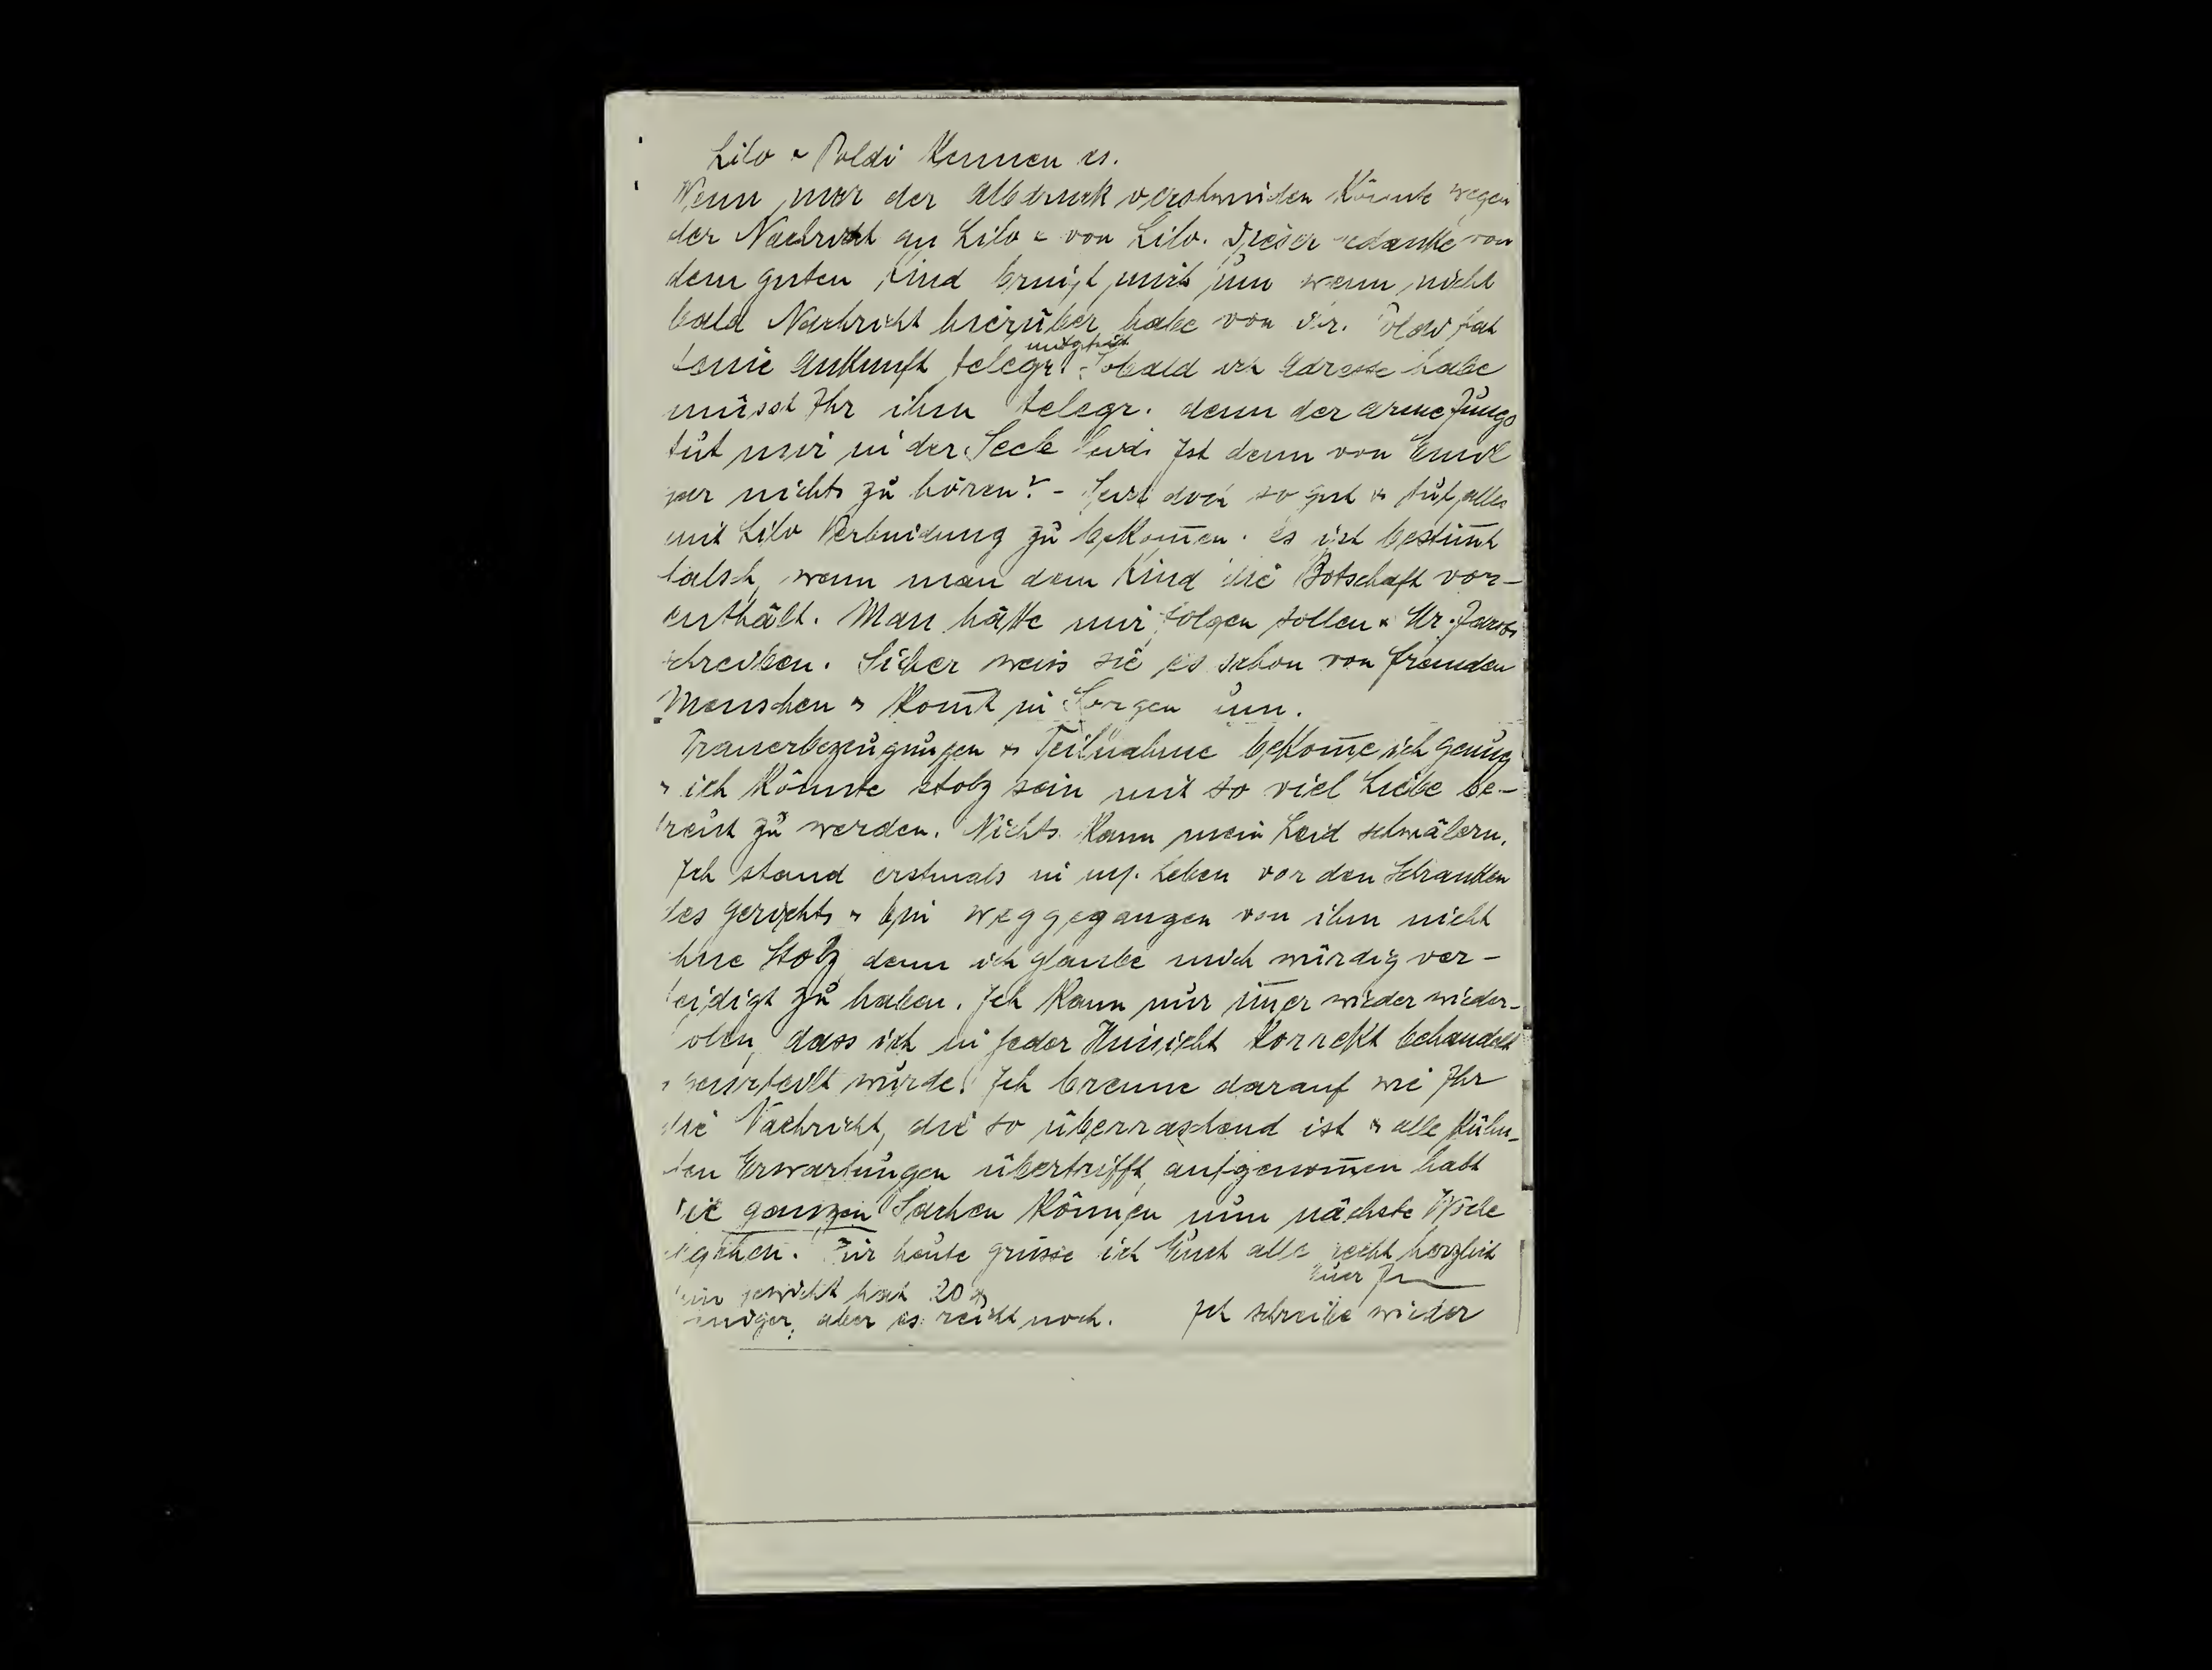 Lilo & Poldi kennen es.
Wenn nur der Albdruck verschwinden könnte wegen
der Nachricht an Lilo & von Lilo. Dieser edanke von
dem guten Kind bringt mich um wenn nicht
bald Nachricht hierüber habe von Dir. hat
seine Ankunft telegr. mitgeteilt. Sobald ich Adresse habe
müsst Ihr ihm telegr. denn der arme Junge
tut mir in der Seele leid. Ist denn von Emil
gar nichts zu hören? - Seid doch so gut & tut alles
mit Lilo Verbindung zu bekom̅en. es ist bestim̅t
falsch, wenn man dem Kind die Botschaft vor-
enthält. Man hätte mir folgen sollen &
schreiben. Sicher weiss sie es schon von fremden
Menschen & kom̅t in Sorgen um.
Trauerbezeugungen & Teilnahme bekom̅e ich genug
& ich könnte stolz sein mit so viel Liebe be-
treut zu werden. Nichts kann mein Leid schmälern.
Ich stand erstmals in mj. Leben vor den Schranken
des Gerichts & bin weggegangen von ihm nicht
ohne Stolz, denn ich glaube mich würdig ver-
teidigt zu haben. Ich kann nur im̅er wieder wieder-
olen, dass ich in jeder Hinsicht korrekt behandelt
& beurteilt wurde. Ich brenne darauf wie Ihr
die Nachricht, die so überraschend ist & alle kühn-
ten Erwartungen übertrifft, aufgenom̅en habt
Die ganzen Sachen können nun nächste Woche
egehen. Für heute grüsse ich Euch alle recht herzlich
Euer
ein Gewicht hat 20
weniger, aber es reicht noch. Ich schreibe wieder